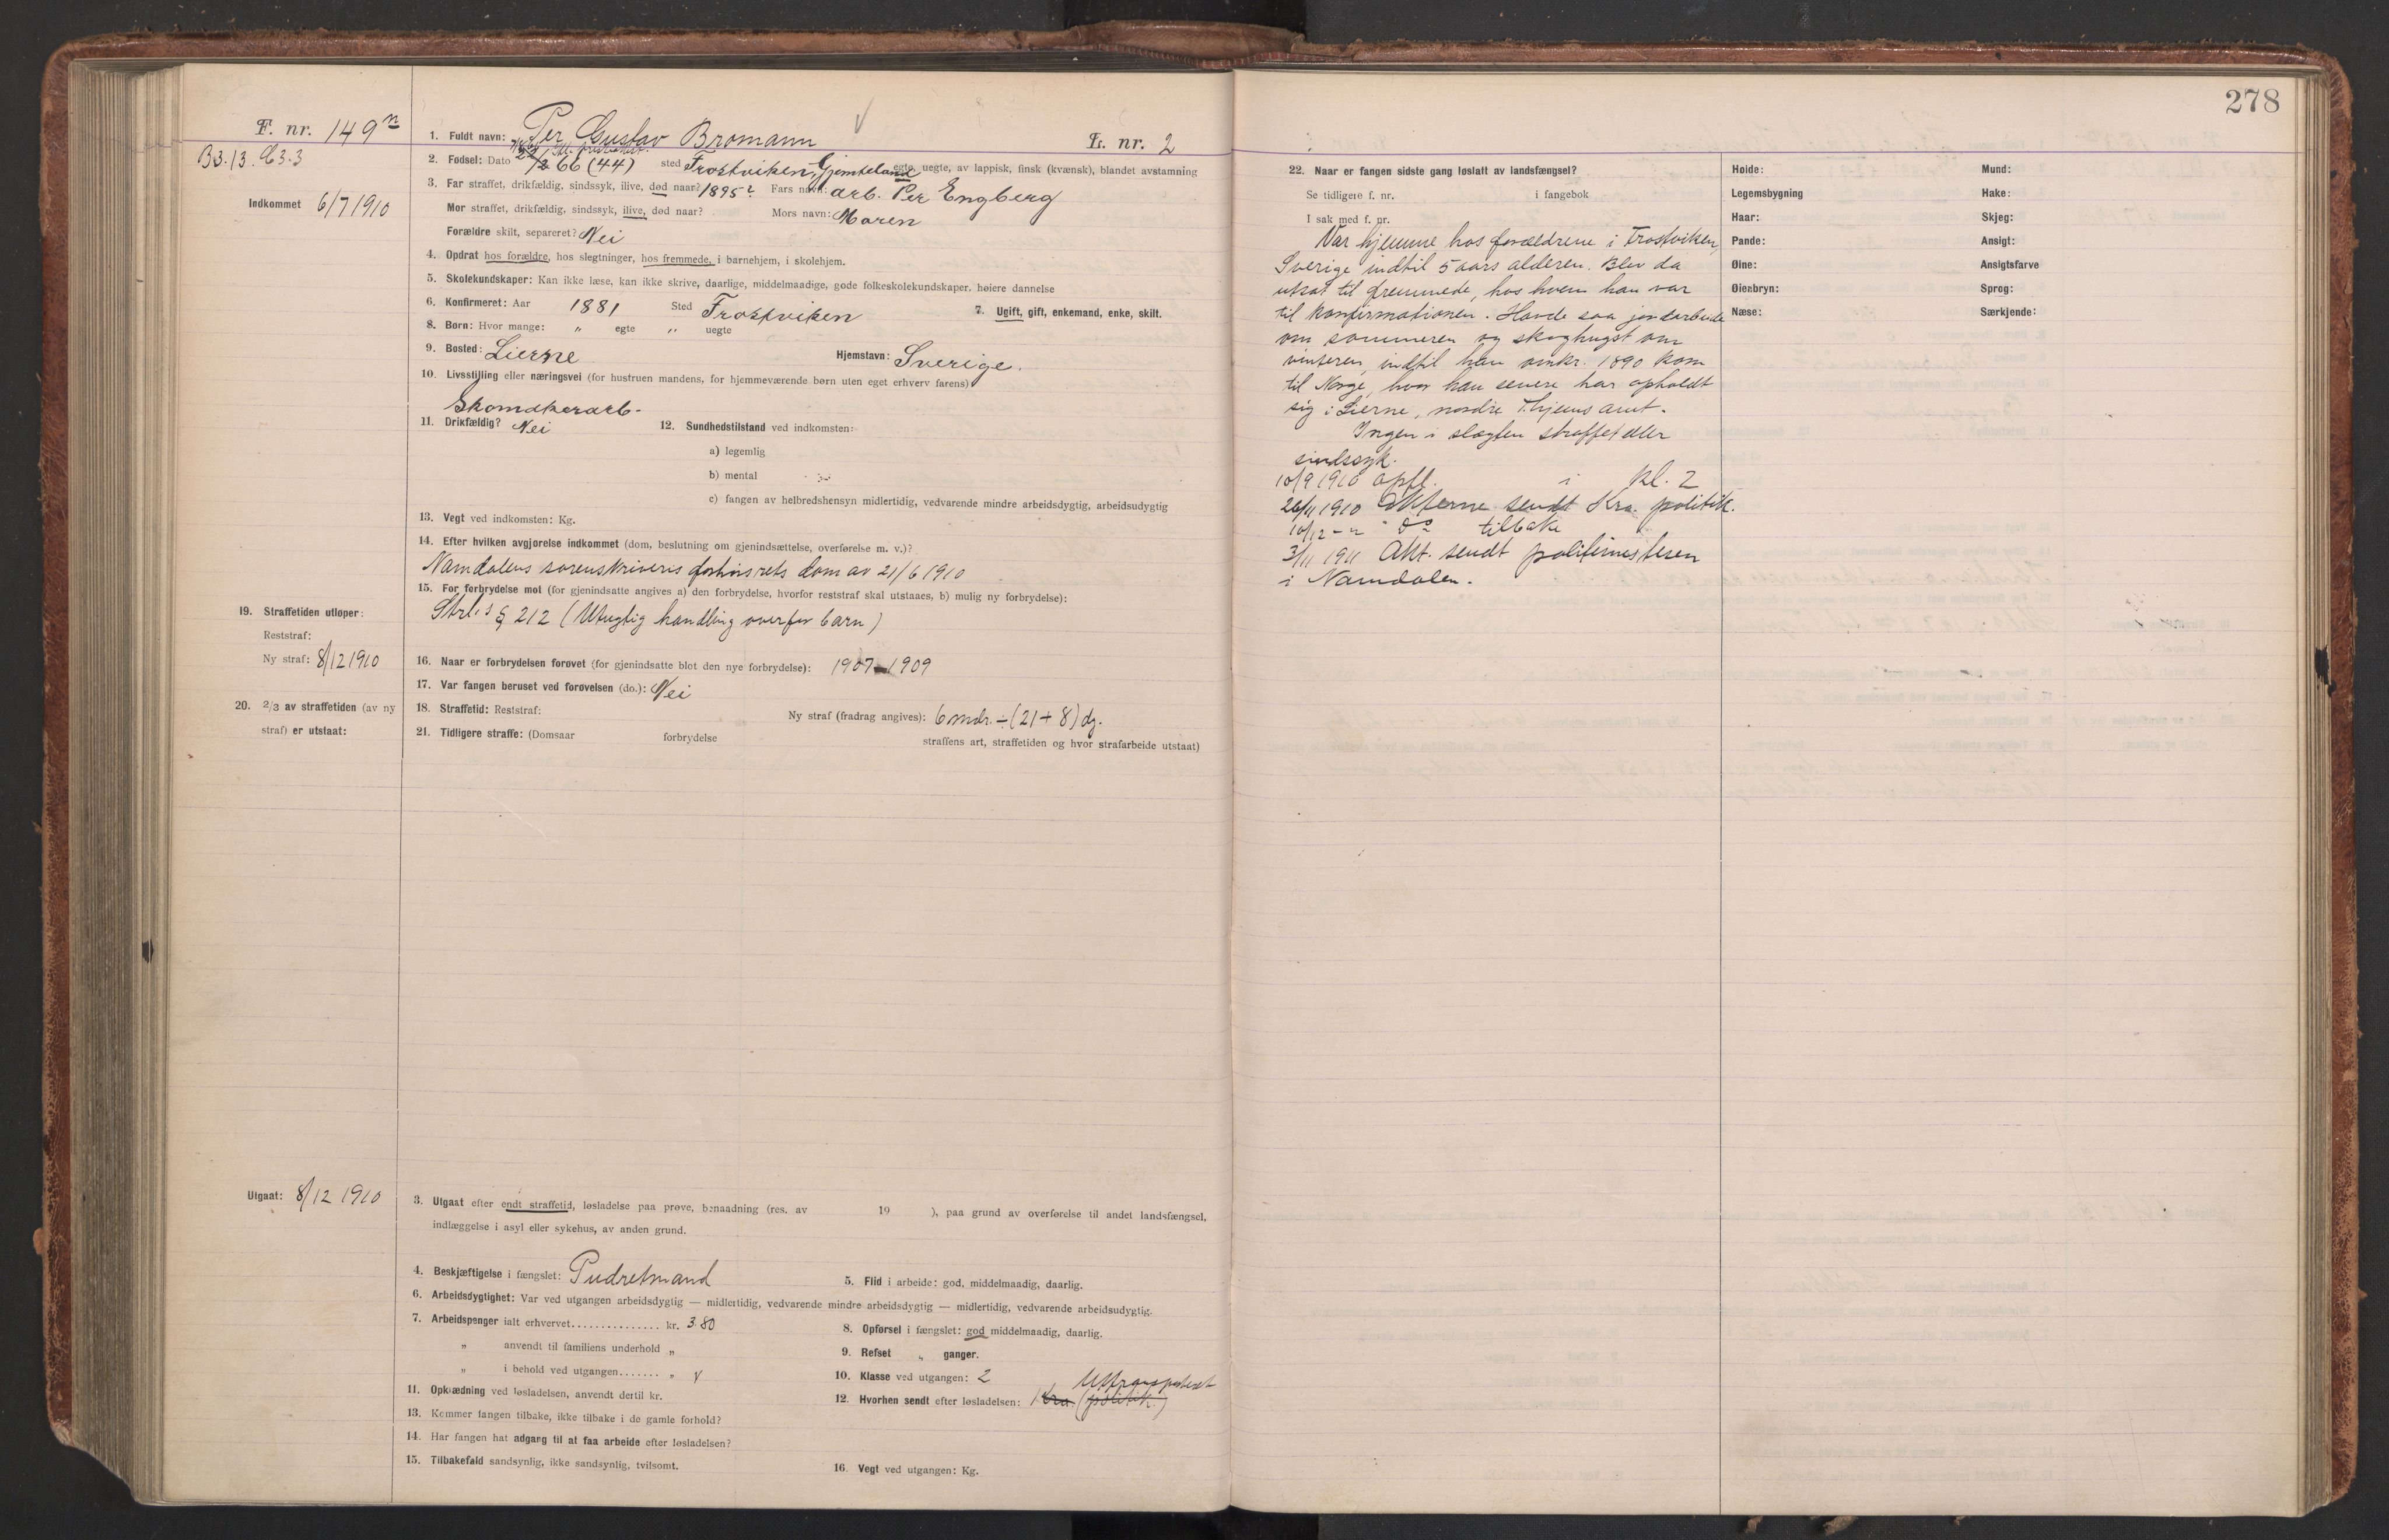 278
F. nr. 149 n
B3.13. C3.3
Indkommet 6/7 1910
1. Fuldt navn: Per Gustav Bromann
L. nr. 2
2. Fødsel: Dato 66 (44) sted Frostviken, Gjemteland egte, uegte, av lappisk, finsk (kvænsk), blandet avstamning
3. Far straffet, drikfældig, sindssyk, ilive, død naar? 1895? Fars navn: arb. Per Engberg
Mor straffet, drikfældig, sindssyk, ilive, død naar? Mors navn: Maren
Forældre skilt, separeret? Nei
4. Opdrat hos forældre, hos slegtninger, hos fremmede, i barnehjem, i skolehjem.
5. Skolekundskaper: Kan ikke læse, kan ikke skrive, daarlige, middelmaadige, gode folkeskolekundskaper, høiere dannelse
6. Konfirmeret: Aar 1881 Sted Frostviken 7. Ugift, gift, enkemand, enke, skilt.
8. Børn: Hvor mange: " egte " uegte
9. Bosted: Lierne Hjemstavn: Sverige.
10. Livsstilling eller næringsvei (for hustruen mandens, for hjemmeværende børn uten eget erhverv farens)
Skomakerarb.
11. Drikfældig? Nei 12. Sundhedstilstand ved indkomsten:
a) legemlig
b) mental
c) fangen av helbredshensyn midlertidig, vedvarende mindre arbeidsdygtig, arbeidsudygtig
13. Vegt ved indkomsten: Kg.
14. Efter hvilken avgjørelse indkommet (dom, beslutning om gjenindsættelse, overførelse m. v.)?
Namdalens sorenskriveris forhørsrets dom av 21/6 1910
15. For forbrydelse mot (for gjenindsatte angives a) den forbrydelse, hvorfor reststraf skal utstaaes, b) mulig ny forbrydelse):
Strl.s § 212 (Utugtig handling overfor barn)
19. Straffetiden utløper:
Reststraf:
Ny straf: 8/12 1910
16. Naar er forbrydelsen forøvet (for gjenindsatte blot den nye forbrydelse): 1907-1909
17. Var fangen beruset ved forøvelsen (do.): Nei
20. 2/3 av straffetiden (av ny
straf) er utstaat:
18. Straffetid: Reststraf: Ny straf (fradrag angives): 6 mdr. ÷ (21 + 8) dg.
21. Tidligere straffe: (Domsaar forbrydelse straffens art, straffetiden og hvor strafarbeide utstaat)
Utgaat: 8/12 1910
3. Utgaat efter endt straffetid, løsladelse paa prøve, benaadning (res. av 19 ), paa grund av overførelse til andet landsfængsel,
indlæggelse i asyl eller sykehus, av anden grund.
4. Beskjæftigelse i fængslet: Pudretmand 5. Flid i arbeide: god, middelmaadig, daarlig.
6. Arbeidsdygtighet: Var ved utgangen arbeidsdygtig — midlertidig, vedvarende mindre arbeidsdygtig — midlertidig, vedvarende arbeidsudygtig.
7. Arbeidspenger ialt erhvervet............... kr. 3.80 8. Opførsel i fængslet: god middelmaadig, daarlig.
" anvendt til familiens underhold " 9. Refset " ganger.
" i behold ved utgangen....... " 10. Klasse ved utgangen: 2
11. Opklædning ved løsladelsen, anvendt dertil kr. 12. Hvorhen sendt efter løsladelsen: Kra. (politik.)
13. Kommer fangen tilbake, ikke tilbake i de gamle forhold?
14. Har fangen hat adgang til at faa arbeide efter løsladelsen?
15. Tilbakefald sandsynlig, ikke sandsynlig, tvilsomt. 16. Vegt ved utgangen: Kg.
22. Naar er fangen sidste gang løslatt av landsfængsel?
Se tidligere f. nr. i fangebok
I sak med f. nr.
Var hjemme hos forældrene i Frostviken,
Sverige indtil 5 aars alderen. Blev da
utsat til fremmede, hos hvem han var
til konfirmationen. Havde saa jordarbeide
om sommeren og skoghugst om
vinteren, indtil han omkr. 1890 kom
til Norge, hvor han senere har opholdt
sig i Lierne, nordre Thjems amt.
Ingen i slægten straffet eller
sindssyk.
10/9 1910 opfl. i kl. 2
26/11 1910 Akterne sendt Kra. politik.
10/12 - " " do tilbake
3/11 1911 Akt. sendt politimesteren
i Namdalen.
Høide:
Legemsbygning
Haar:
Pande:
Øine:
Øienbryn:
Næse:
Mund:
Hake:
Skjeg:
Ansigt:
Ansigtsfarve
Sprog:
Særkjende: